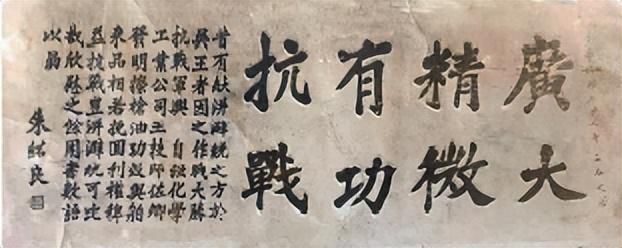 廣大
精微
有功
抗戰
昔有献洴澼絖之方於
吳王者因之作戰大勝
抗戰軍興 自強化學
工業公司主技師佐卿
發明擦槍油功效與舶
来品相若挽回利權稗
益抗戰豈洴澼絖可
哉欣慰之餘用書數語
以勗
朱紹良